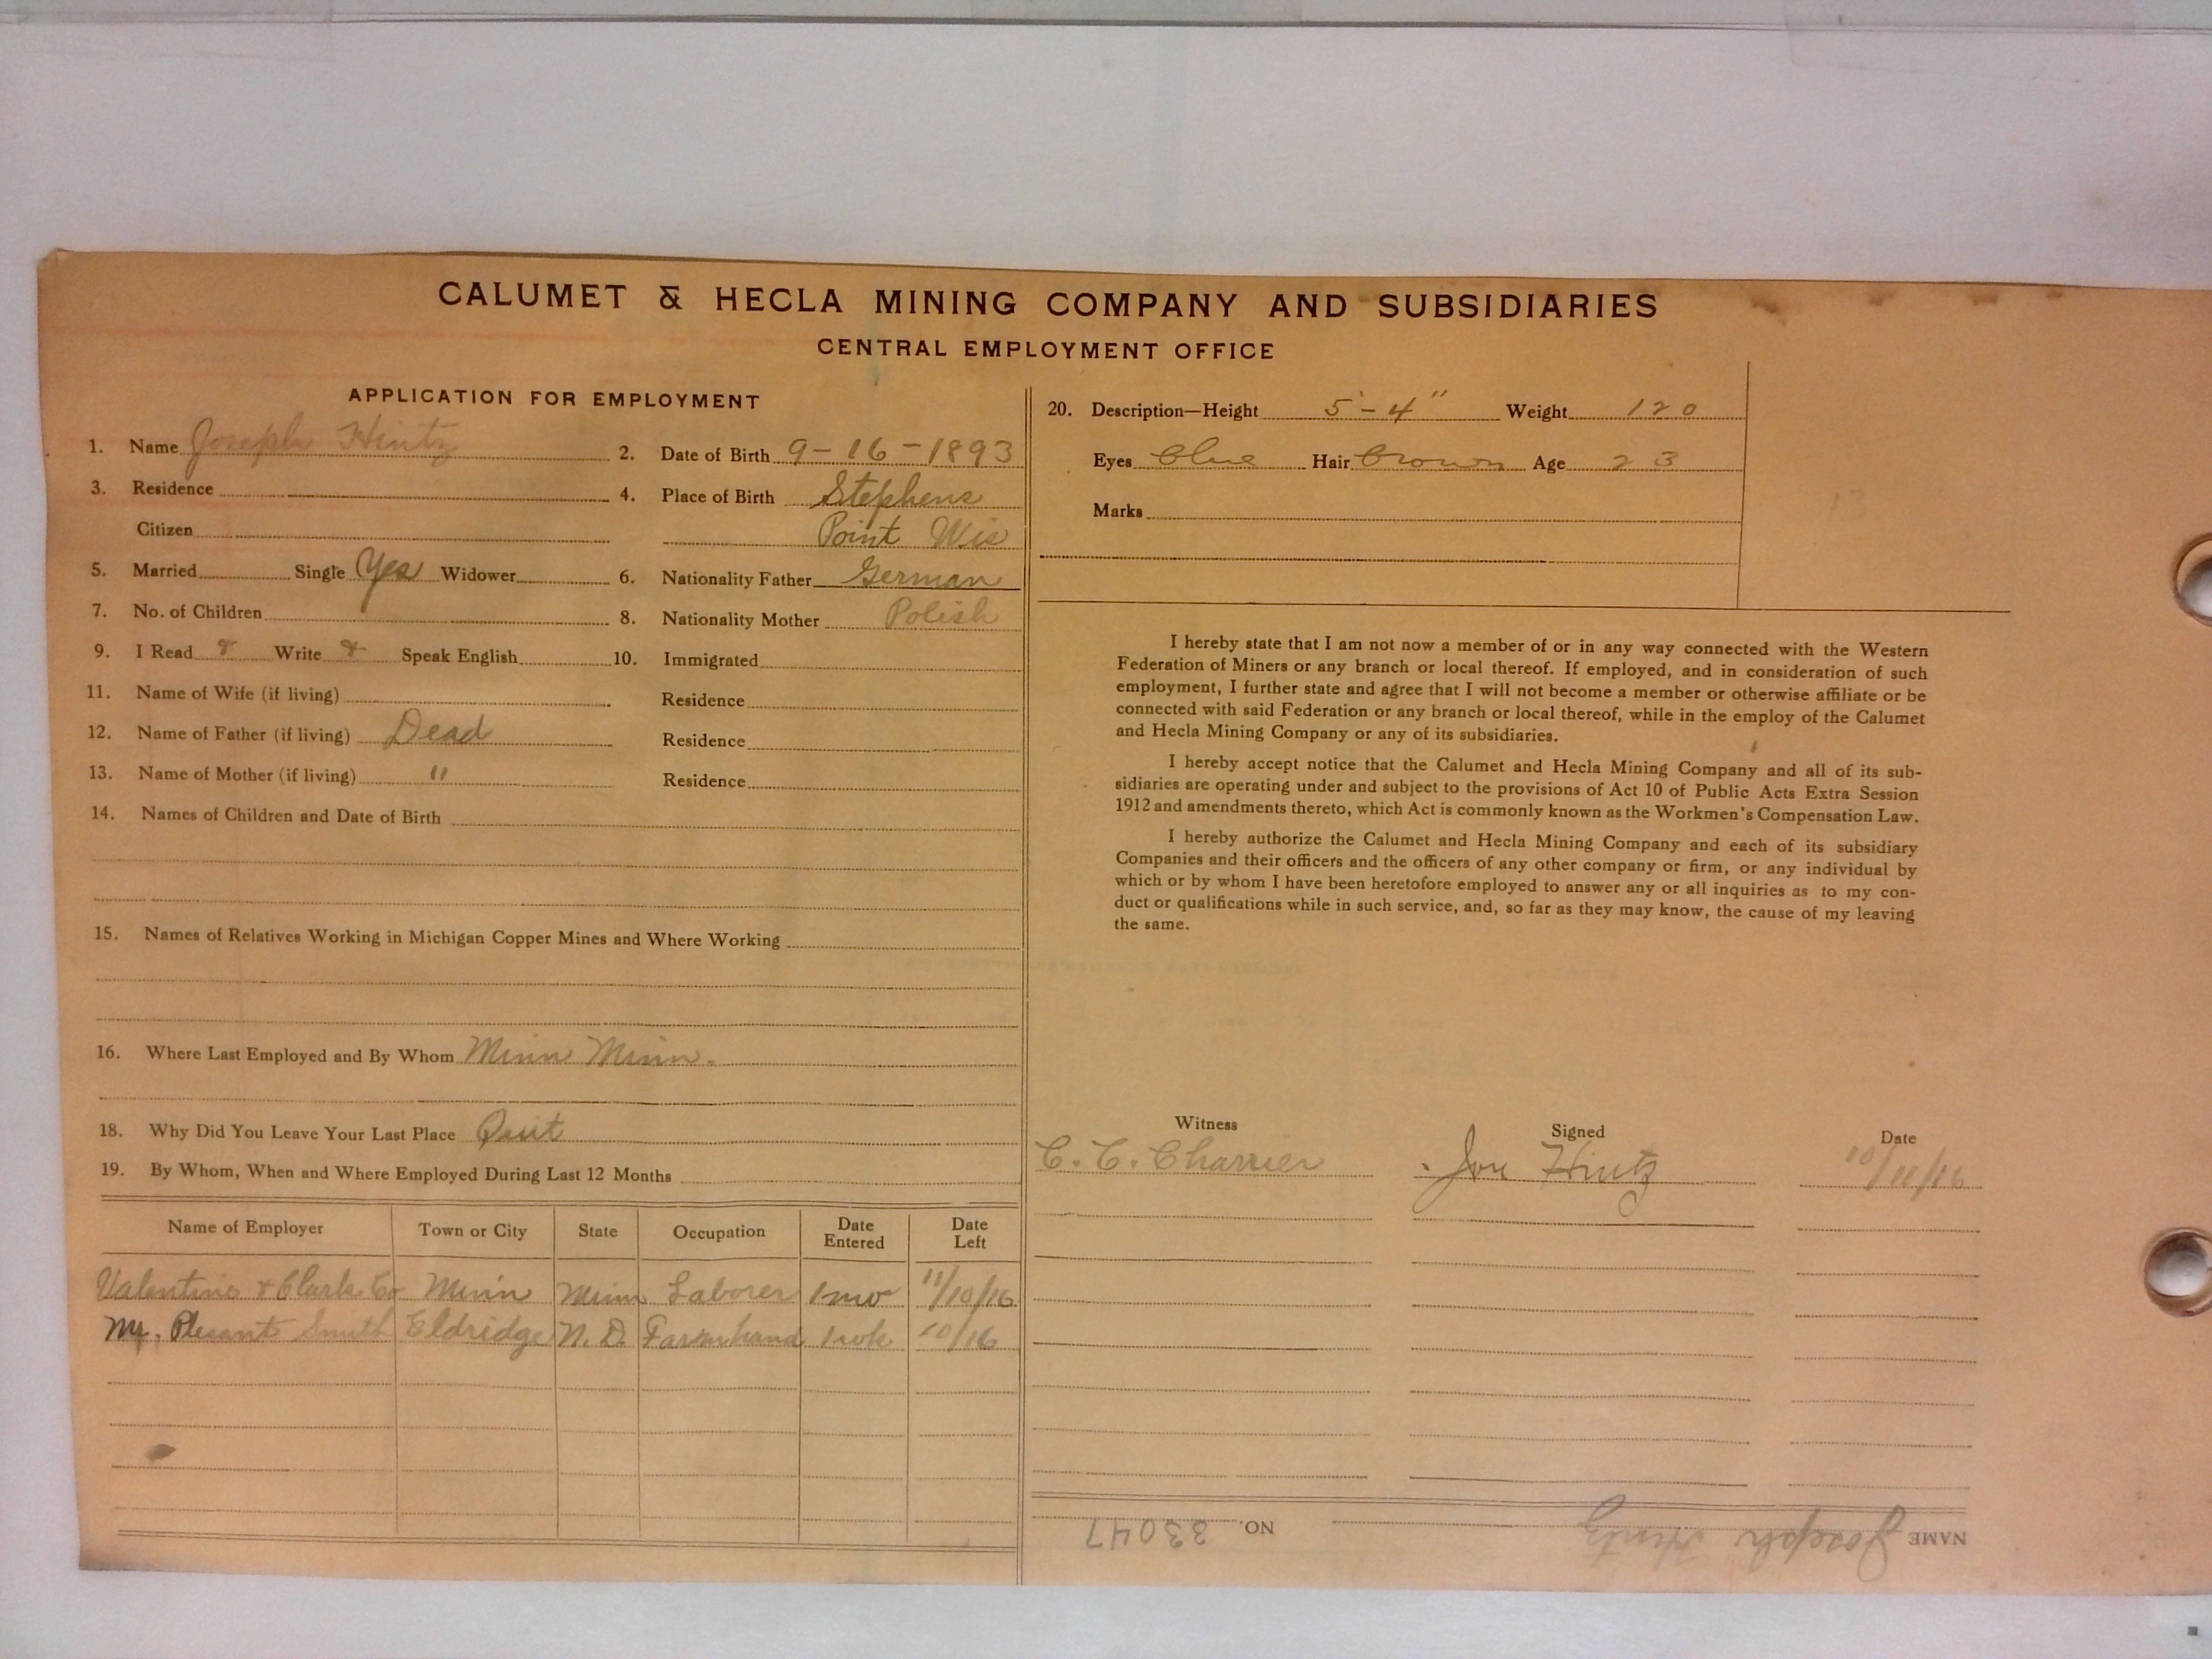 CALUMET & HECLA MINING COMPANY AND SUBSIDIARIES
CENTRAL EMPLOYMENT OFFICE
APPLICATION FOR EMPLOYMENT
1. Name Joseph Hintz 2. Date of Birth 9-16-1893
3. Residence 4. Place of Birth Stephens
Citizen Point Wis
5. Married Single Yes Widower 6. Nationality Father German
7. No. of Children 8. Nationality Mother Polish
9. I Read & Write & Speak English 10. Immigrated
11. Name of Wife (if living) Residence
12. Name of Father (if living) Dead Residence
13. Name of Mother (if living) " Residence
14. Names of Children and Date of Birth
15. Names of Relatives Working in Michigan Copper Mines and Where Working
16. Where Last Employed and By Whom Minn Minn.
18. Why Did You Leave Your Last Place Quit
19. By Whom, When and Where Employed During Last 12 Months
Name of Employer Town or City State Occupation Date Entered Date Left
Valentine & Clark Co Minn Minn Laborer 1 mo 11/10/16
Mr. Plesant Smith Eldridge N. D. Farmhand 1 wk. 10/16
20. Description—Height 5'-4" Weight 120
Eyes Blue Hair Brown Age 23
Marks
I hereby state that I am not now a member of or in any way connected with the Western
Federation of Miners or any branch or local thereof. If employed, and in consideration of such
employment, I further state and agree that I will not become a member or otherwise affiliate or be
connected with said Federation or any branch or local thereof, while in the employ of the Calumet
and Hecla Mining Company or any of its subsidiaries.
I hereby accept notice that the Calumet and Hecla Mining Company and all of its sub-
sidiaries are operating under and subject to the provisions of Act 10 of Public Acts Extra Session
1912 and amendments thereto, which Act is commonly known as the Workmen's Compensation Law.
I hereby authorize the Calumet and Hecla Mining Company and each of its subsidiary
Companies and their officers and the officers of any other company or firm, or any individual by
which or by whom I have been heretofore employed to answer any or all inquiries as to my con-
duct or qualifications while in such service, and, so far as they may know, the cause of my leaving
the same.
Witness Signed Date
C. C. Charrier Joe Hintz 10/11/16
NAME Joseph Hintz NO. 33047